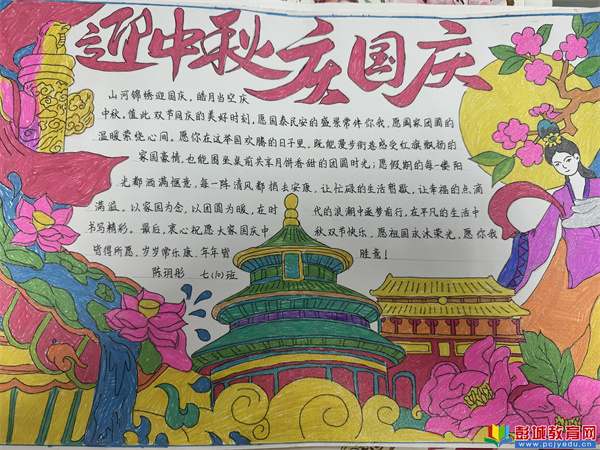 迎中秋 庆国庆
山河锦绣迎国庆，皓月当空庆
中秋，值此双节同庆的美好时刻，愿国泰民安的盛景常伴你我，愿阖家团圆的
温暖萦绕心间。愿你在这举国欢腾的日子里，既能漫步街巷感受红旗飘扬的
家国豪情，也能围坐桌前共享月饼香甜的团圆时光；愿假期的每一缕阳
光都洒满惬意，每一阵清风都捎去安康，让忙碌的生活暂歇，让幸福的点滴
满溢。以家国为念，以团圆为暖，在时代的浪潮中逐梦前行，在平凡的生活中
书写精彩。最后，衷心祝愿大家国庆中秋双节快乐，愿祖国永沐荣光，愿你我
皆得所愿，岁岁常乐康，年年皆胜意！
陈玥彤 七(10)班
彭城教育网
www.pcjyedu.cn